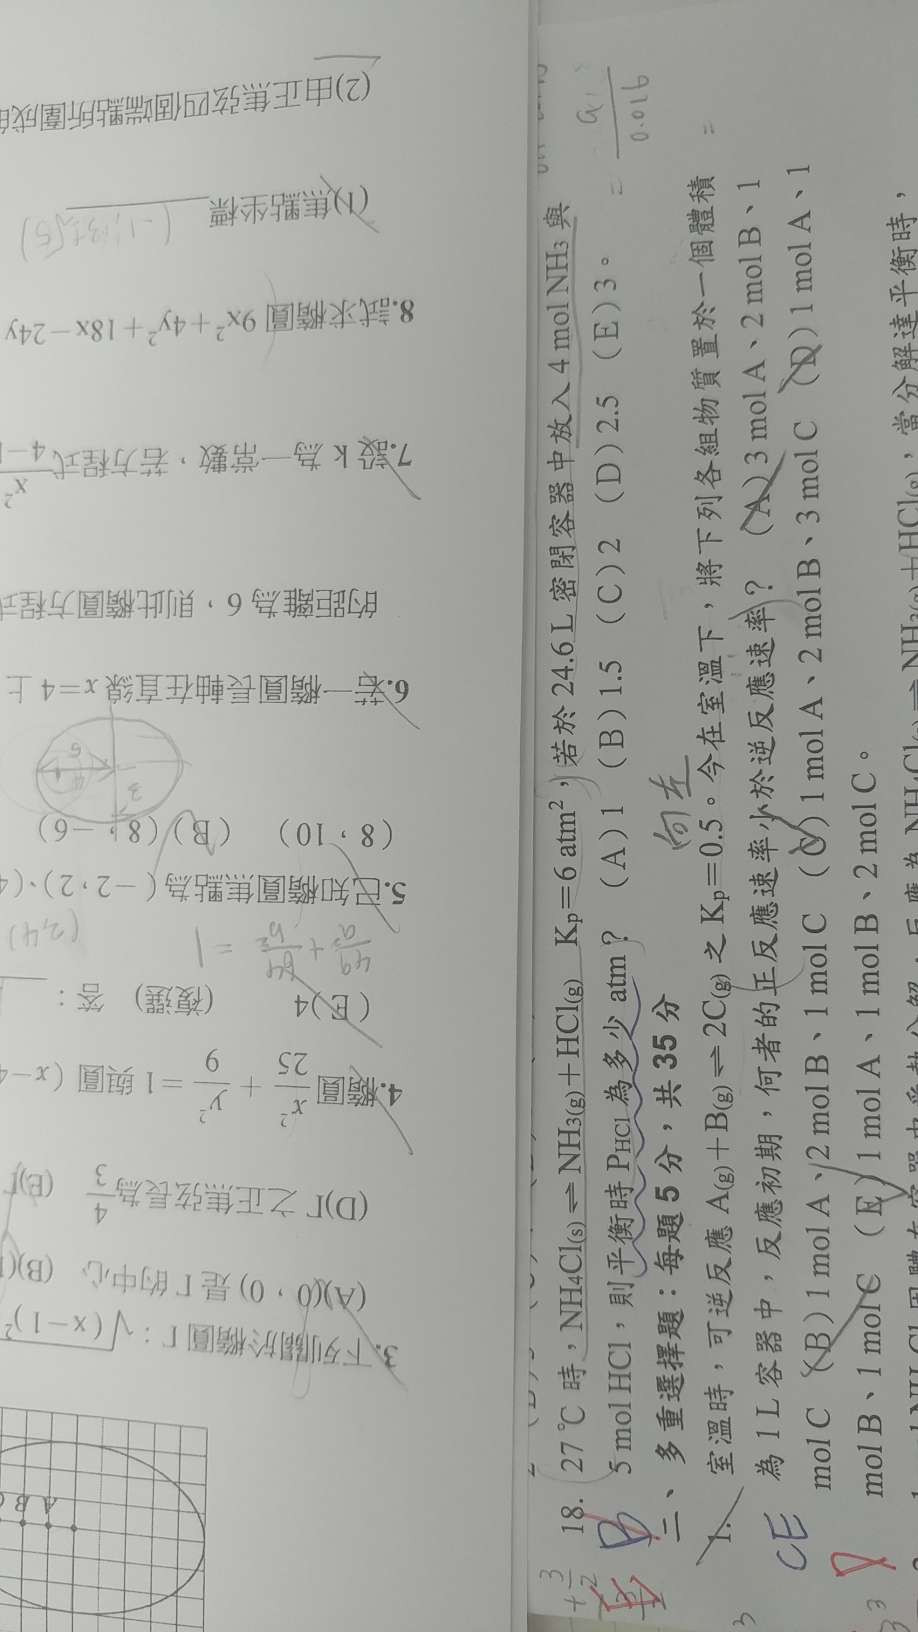 18. 27℃時，NH₄Cl(s)⇌NH₃(g)+HCl(g) Kp=6 atm²，若於24.6 L密閉容器中放入4 mol NH₃與
5 mol HCl，則平衡時P_HCl為多少atm？ (A)1 (B)1.5 (C)2 (D)2.5 (E)3。
B
二、多重選擇題：每題5分，共35分
向左
1. 室溫時，可逆反應A(g)+B(g)⇌2C(g)之Kp=0.5。今在室溫下，將下列各組物質置於一個體積
為1 L容器中，反應初期，何者的正反應速率少於逆反應速率？ (A)3 mol A、2 mol B、1
mol C (B)1 mol A、2 mol B、1 mol C (C)1 mol A、2 mol B、3 mol C (D)1 mol A、1
mol B、1 mol C (E)1 mol A、1 mol B、2 mol C。
CE
D
0.016
3.下列關於橢圓Γ：√(x−1)²
(A)(0，0)是Γ的中心 (B)
(D)Γ之正焦弦長為4/3 (E)
4.橢圓 x²/25 + y²/9 =1與圓 (x−4
(E)4 (複選) 答：
49/a² + 64/b² = 1
(2,4)
5.已知橢圓焦點為(−2，2)、(4
(8，10) (B) (8，−6)
3
6.若一橢圓長軸在直線 x=4 上
的距離為 6，則此橢圓方程式
7.設 k 為一常數，若方程式 x²/4−
8.試求橢圓 9x²+4y²+18x−24y
(1)焦點坐標
(2)由正焦弦四個端點所圍成的
A B